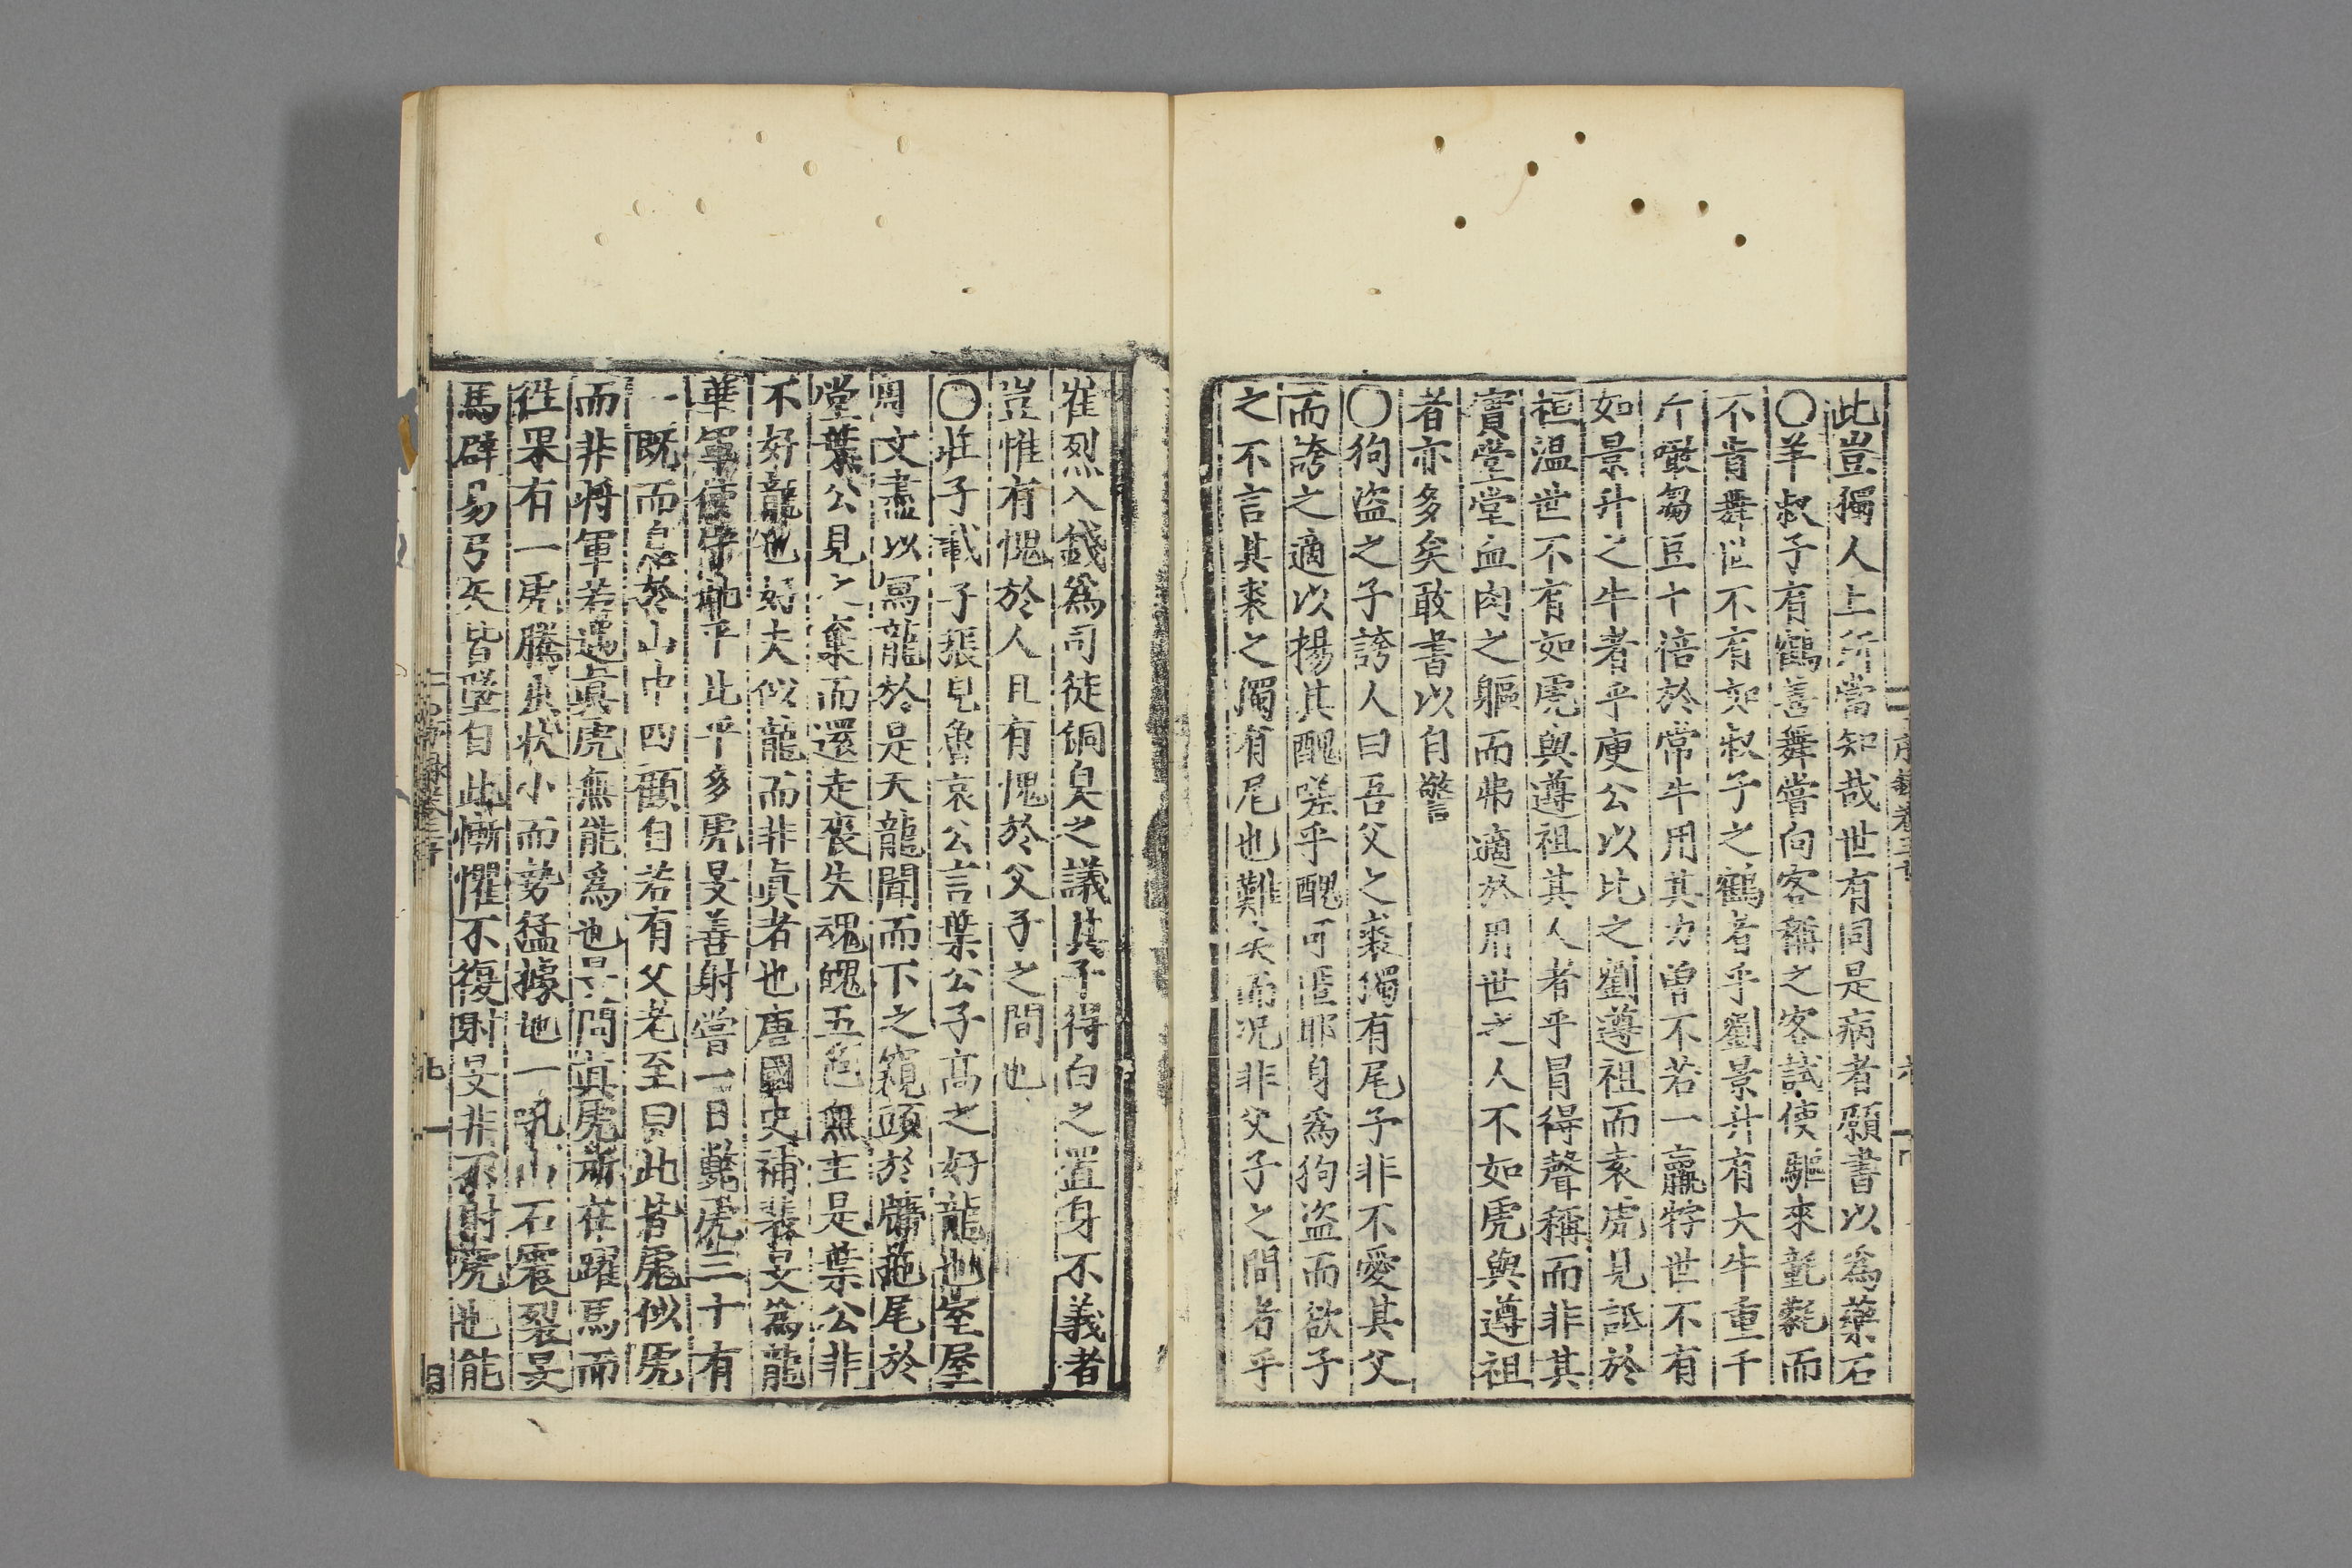 此豈獨人上所當知哉世有同是病者願書以爲藥石
〇羊叔子有鶴善舞嘗向客稱之客試使驅來氃氋而
不肯舞世不有如叔子之鶴者乎劉景升有大牛重千
斤噉芻豆十倍於常牛用其力曾不若一羸牸世不有
如景升之牛者乎庾公以比之劉遵祖而袁虎見詆於
桓温世不有如虎與遵祖其人者乎冒得聲稱而非其
實堂堂血肉之軀而弗適於用世之人不如虎與遵祖
者亦多矣敢書以自警
〇狗盜之子誇人曰吾父之裘獨有尾子非不愛其父
而誇之適以揚其醜嗟乎醜可匿耶身爲狗盜而欲子
之不言其裘之獨有尾也難矣而况非父子之間者乎
崔烈入錢爲司徒銅臭之議其子得白之置身不義者
豈惟有愧於人且有愧於父子之間也
〇莊子載子張見魯哀公言葉公子高之好龍也室屋
周文盡以寫龍於是天龍聞而下之窺頭於牖拖尾於
堂葉公見之棄而還走喪失魂魄五色無主是葉公非
不好龍也好夫似龍而非眞者也唐國史補裴旻爲龍
華軍使守北平北平多虎旻善射嘗一日斃虎三十有
一既而息於山中四顧自若有父老至曰此皆彪似虎
而非將軍若遇眞虎無能爲也旻問眞虎所在躍馬而
徃果有一虎騰出狀小而勢猛據地一吼山石震裂旻
馬辟易弓矢皆墜自此慚懼不復射旻非不射虎也能